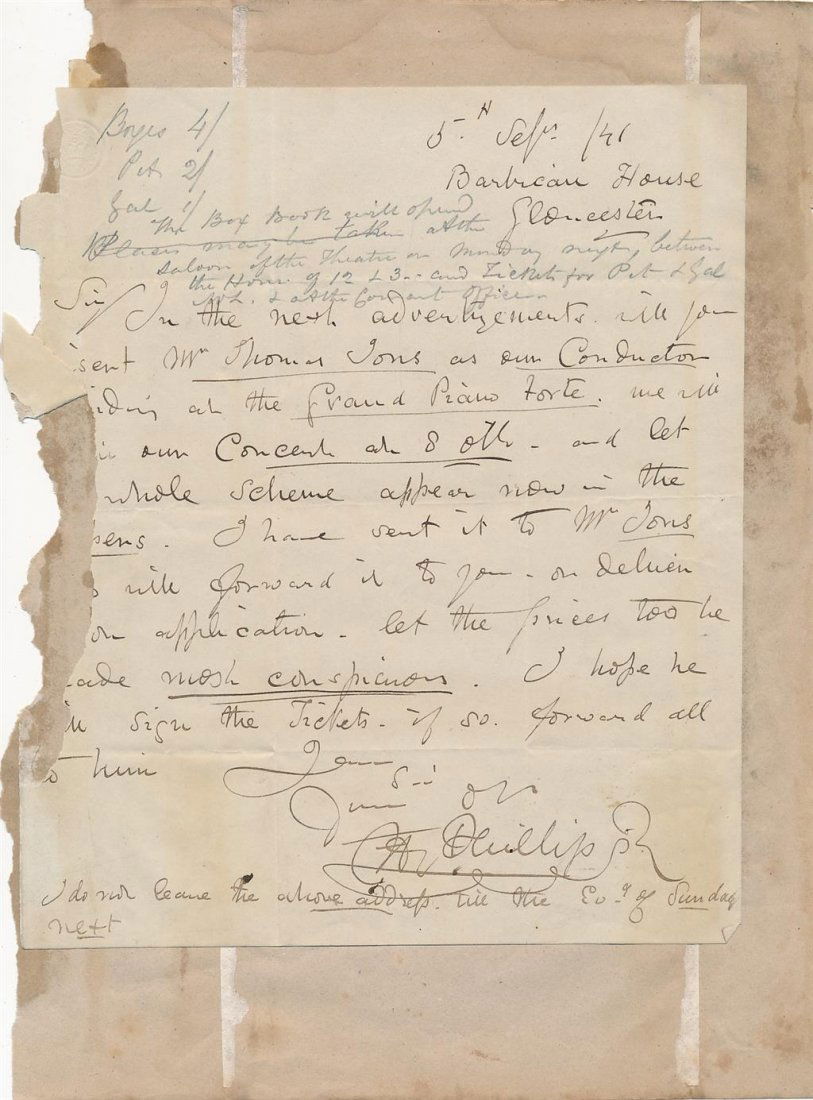 Boxes 4/
Pit 2/
Gal 1/
5.th Sepr /41
Barbican House
Gloucester
The Box Book will opend
Places may be taken at the
Saloon of the Theatre on Monday next, between
the Hours of 12 & 3 -- and Tickets for Pit & Gal
& at the Courant Office
Sir/ In the next advertizements. will you
sent Mr Thomas Jons as our Conductor
iding at the Grand Piano Forte. we will
our Concert at 8 oth - and let
whole scheme appear now in the
pers. I have sent it to Mr Jons
will forward it to you - or deliver
on application. let the prices too be
ade most conspicuous. I hope he
ill sign the Tickets - if so. forward all
to him
Sir
Hy Phillips
I do not leave the above address. till the Evg of Sunday
next